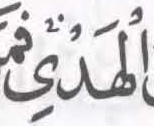 الْهَدْيِ فَمَ